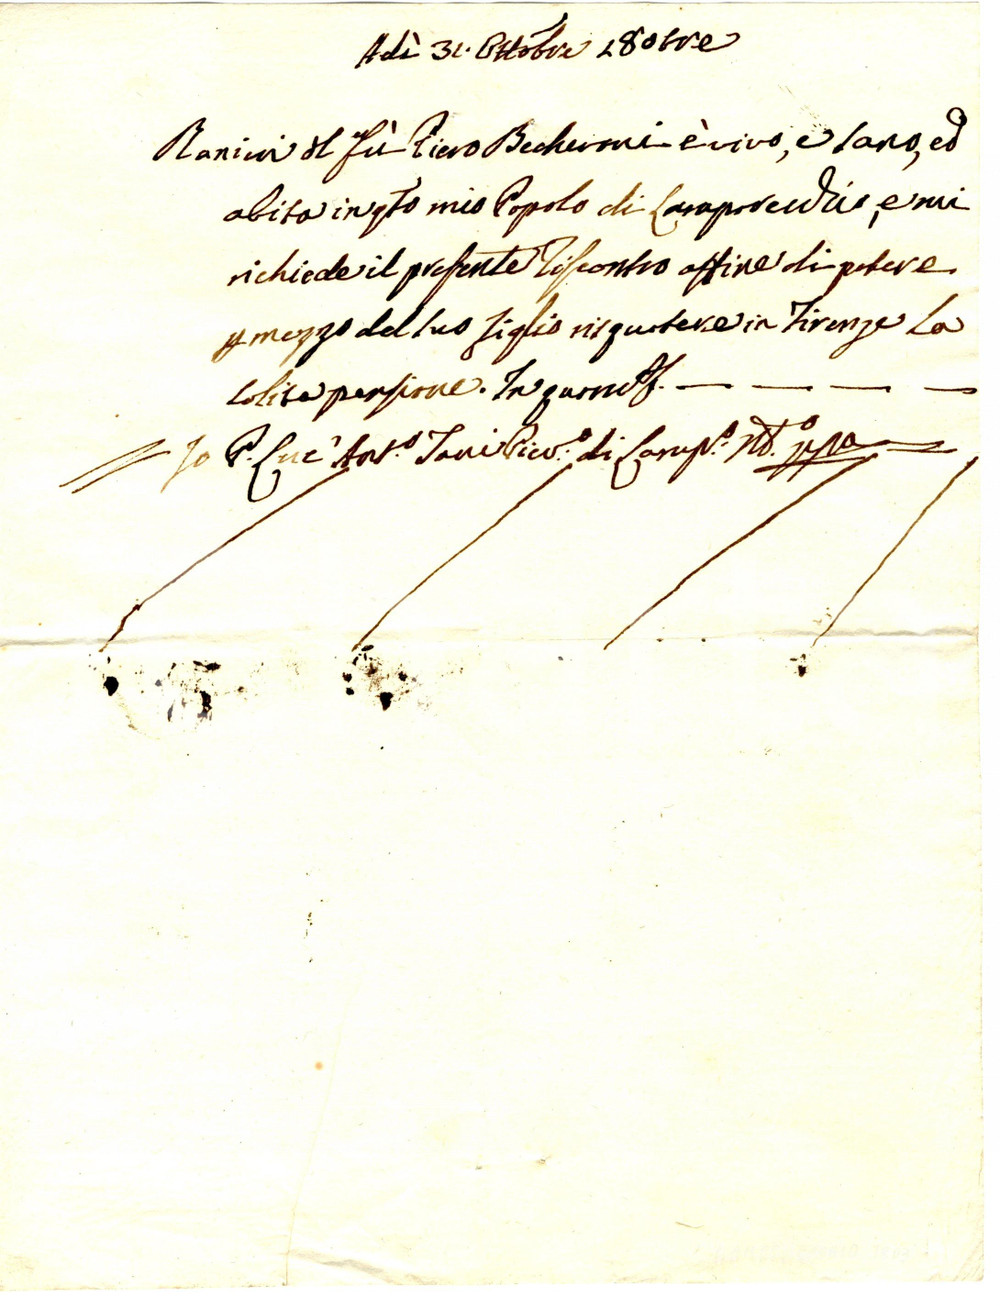 Adì 31. Ottobre 180tre
Ranieri del fù Piero Becheroni è vivo, e sano, ed
abita in qto mio Popolo di Camporevdio, e mi
richiede il presente Riscontro affine di potere
p mezzo del suo figlio risquotere in Firenze la
solita pensione. In quorum f. — — — —
Io P. Luc' Ant.o Tani Piev.o di Camp.o Mo. ppa